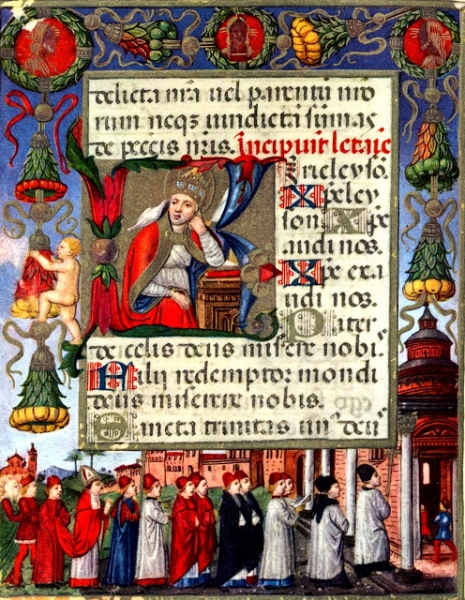 delicta nr̄a vel parentū nr̄o
rum neqꝫ vindictā sumas
de pec̄cis nr̄is. Incipiūt letaīe
Kyrieleysō.
Xp̄eley
son. Xp̄e
audi nos.
Xp̄e exa
udi nos.
Pater
de celis deus miserē nobi⁹.
Filij redemptor mondi
deus miserere nobis.
Sancta trinitas un⁹ deu⁹